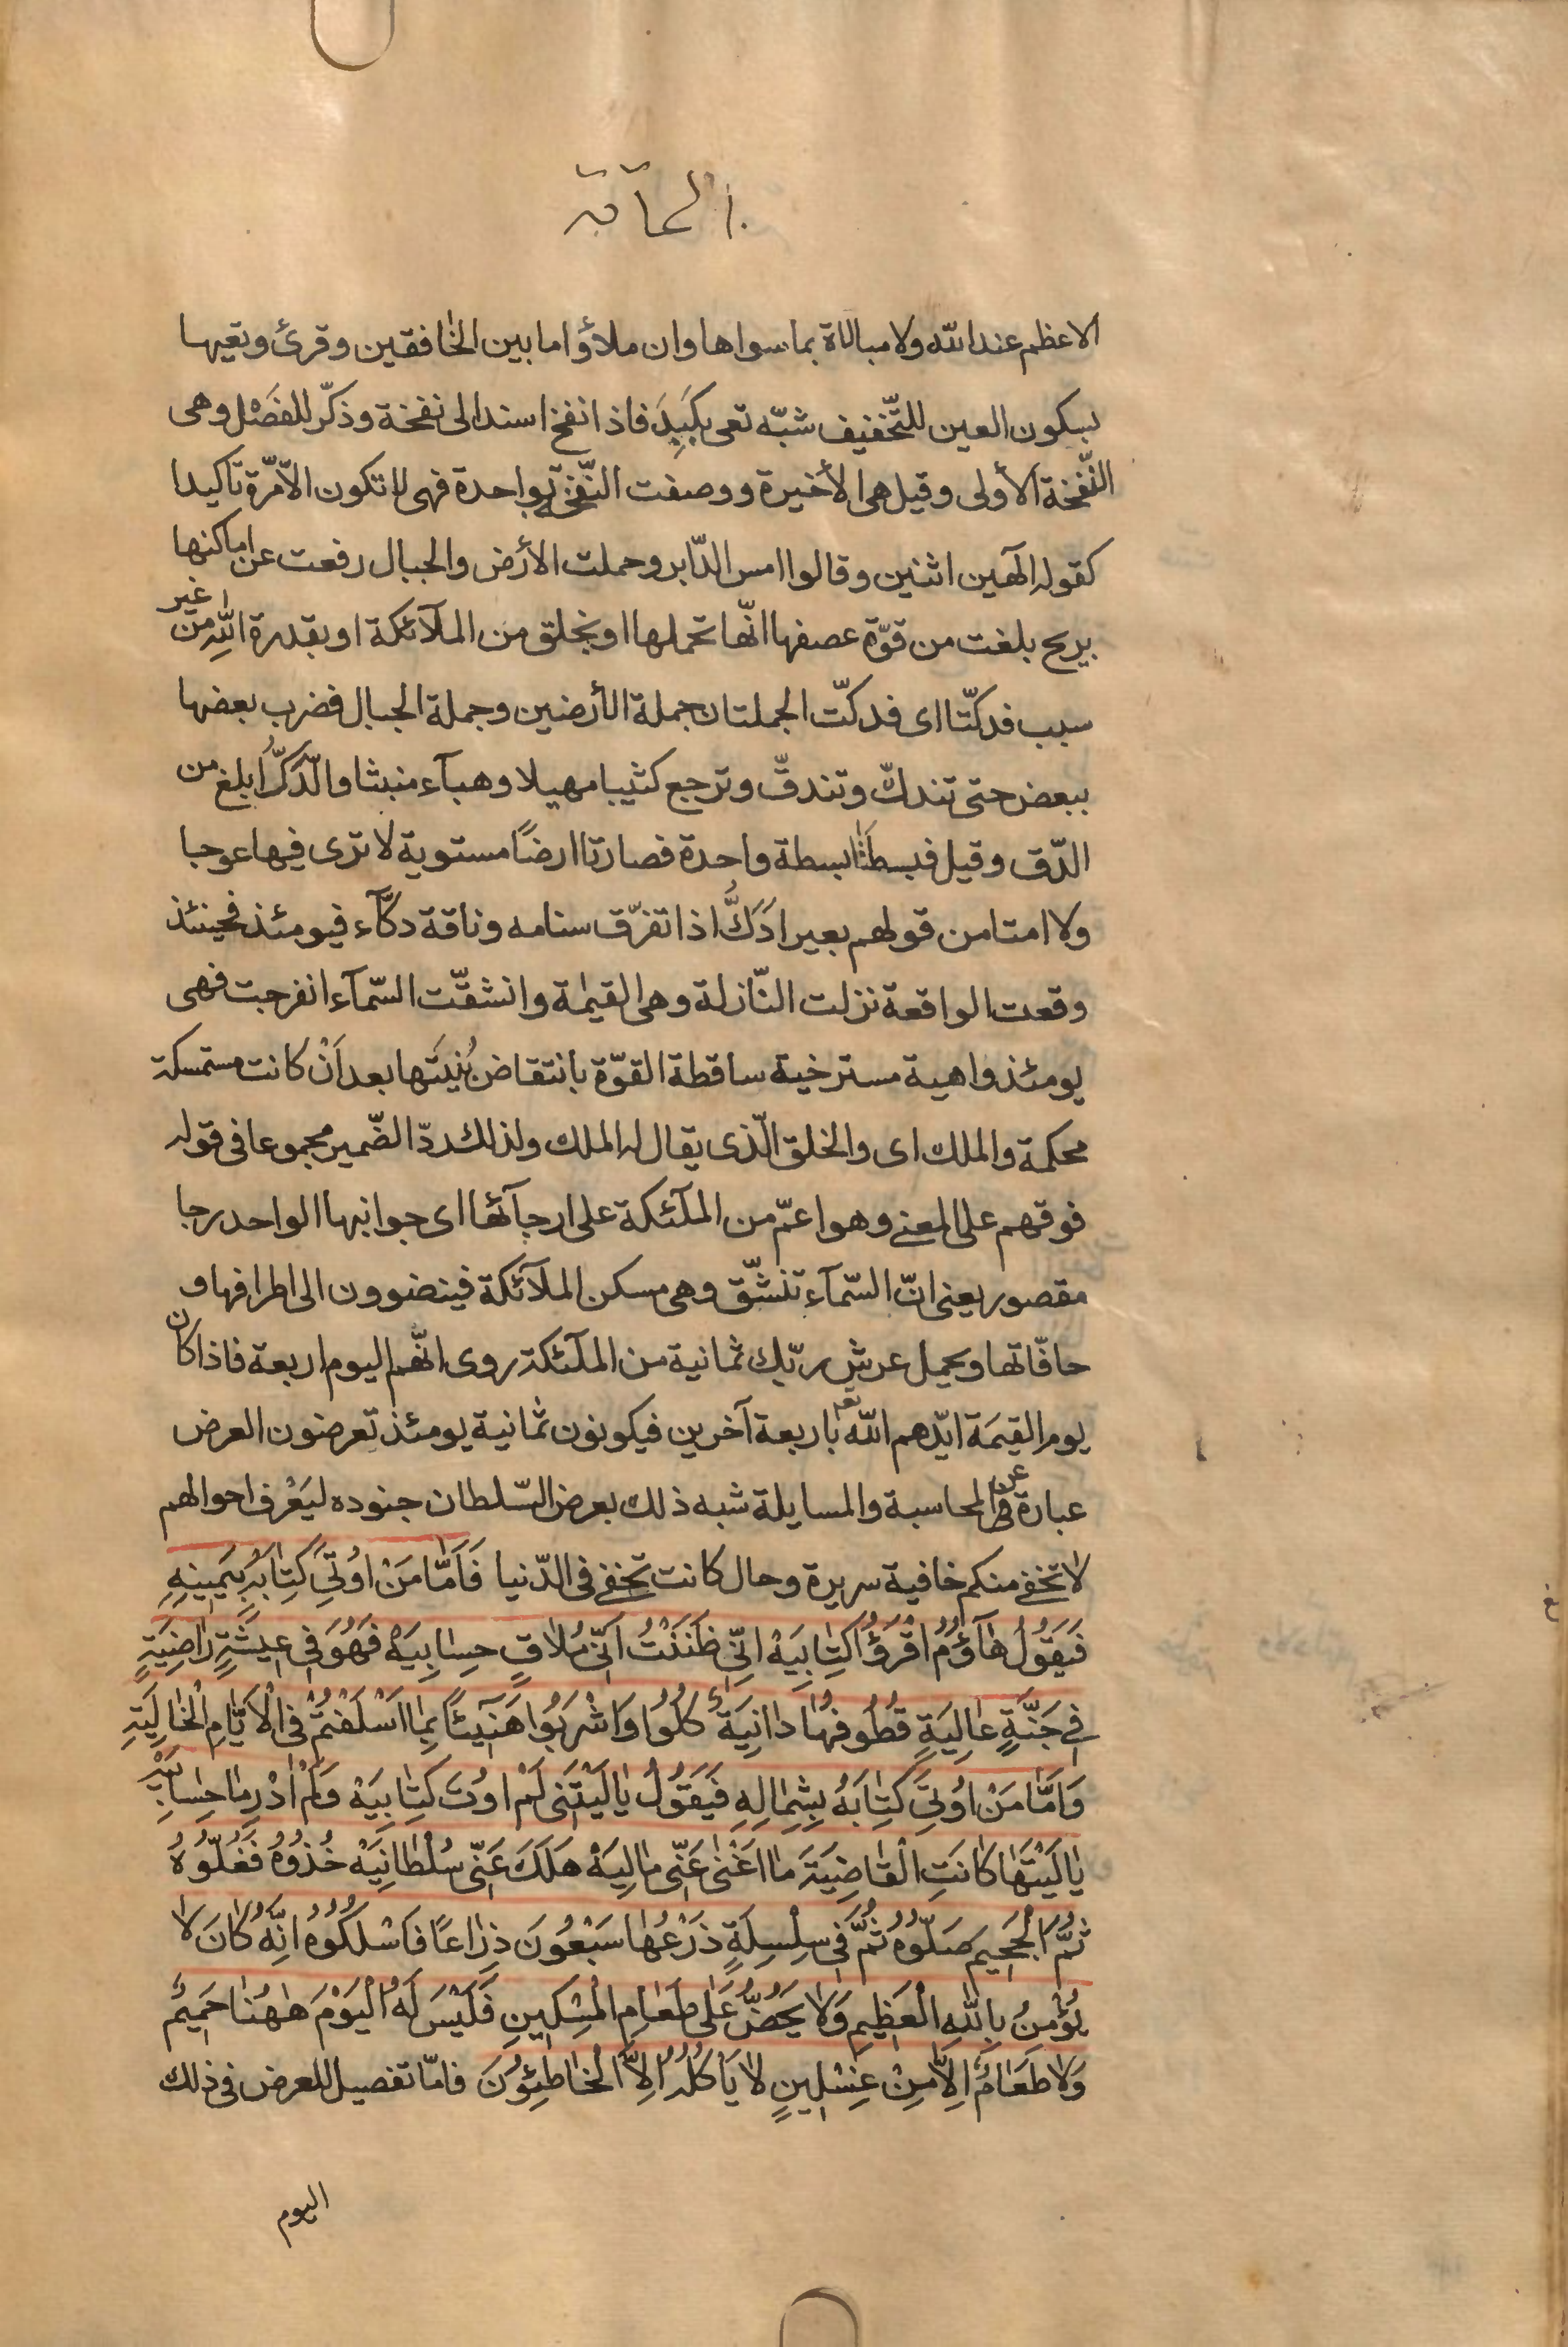 الحآقة
الاعظم عند الله ولا مبالاة بما سواها وان ملاؤا ما بين الخافقين وقرئ وتعيها
بسكون العين للتّخفيف شبّه تعى بكَبِدَ فاذا نفخ اسند الى نفخة وذكّر للفَصْل وهى
النّفخة الأولى وقيل هى الأخيرة ووصفت النّفخة بواحدة فهى لا تكون الّا مّرة تاكيدا
كقوله الٓهين اثنين وقالوا امس الدّابر وحملت الأرض والجبال رفعت عن اماكنها
بريح بلغت من قوّة عصفها انّها تحملها او بخلق من الملآئكة او بقدرة اللّهِ من غير
سبب فدكّتا اى فدكّت الجملتان جملة الأرضين وجملة الجبال فضرب بعضها
ببعض حتى تندكّ وتندقّ وترجع كثيبا مهيلا وهبآء منبثا والدّكّ ابلغ من
الدّق وقيل فبسطتا بسطة واحدة فصارتا ارضًا مستوية لا ترى فيها عوجا
ولا امتا من قولهم بعير ادَكُّ اذا تفرّق سنامه وناقة دكّآء فيومئذ فحينئذ
وقعت الواقعة نزلت النّازلة وهى القيٰمة وانشقّت السّمآء انفرجت فهى
يومئذ واهية مسترخية ساقطة القوّة بانتقاض بُنيَتها بعد اَنْ كانت مستمسكة
محكمة والملك اى والخلق الّذى يقال له الملك ولذلك ردّ الضّمير مجموعا فى قوله
فوقهم على المعنى وهو اعمّ من الملٓئكة على ارجآئها اى جوانبها الواحد رجا
مقصور يعنى انّ السّمآء تنشّق وهى مسكن الملآئكة فينضوون الى اطرافها و
حافّاتها ويحمل عرش ربّك ثمانية من الملٓئكة روى انّهم اليوم اربعة فاذا كان
يوم القيٰمَة ايّدهم الله تع باربعة آخرين فيكونون ثمانية يومئذ تعرضون العرض
عبارة عن المحاسبة والمسايلة شبه ذلك بعرض السّلطان جنوده ليَعْرف احوالهم
لا تخفى منكم خافية سريرة وحال كانت تخفى فى الدّنيا فَاَمّٰا مَنْ اُوتِىَ كِتٰابَهُ بِيَمِينِهِ
فَيَقُولُ هٰآؤُمُ اقْرَؤُا كِتٰابِيَهْ اِنّى ظَنَنْتُ اَنّى مُلاٰقٍ حِسٰابِيَهْ فَهُوَ فِى عِيشَةٍ رٰاضِيَةٍ
فِى جَنَّةٍ عٰالِيَةٍ قُطُوفُهٰا دٰانِيَةٌ كُلُوا وَاشْرَبُوا هَنٓيئًا بِمٰا اَسْلَفْتُمْ فِى الْاَيّٰامِ الْخٰالِيَةِ
وَاَمّٰا مَنْ اُوتِىَ كِتٰابَهُ بِشِمٰالِهِ فَيَقُولُ يٰا لَيْتَنى لَمْ اُوتَ كِتٰابِيَهْ وَلَمْ اَدْرِ مٰا حِسٰابِيَهْ
يٰا لَيْتَهٰا كٰانَتِ الْقٰاضِيَةَ مٰا اَغْنىٰ عَنّى مٰالِيَهْ هَلَكَ عَنّى سُلْطٰانِيَهْ خُذُوُهُ فَغُلّوُهُ
ثُمَّ الْجَحِيمَ صَلّوُهُ ثُمَّ فِى سِلْسِلَةٍ ذَرْعُهٰا سَبْعُونَ ذِرٰاعًا فَاسْلُكُوُهُ اِنَّهُ كٰانَ لاٰ
يُؤْمِنُ بِاللّٰهِ الْعَظِيمِ وَلاٰ يَحُضُّ عَلىٰ طَعٰامِ الْمِسْكِينِ فَلَيْسَ لَهُ الْيَوْمَ هٰهُنٰا حَمِيمٌ
وَلاٰ طَعٰامٌ اِلّاٰ مِنْ غِسْلِينٍ لاٰ يَأكُلُهُ اِلَّا الْخٰاطِئوُنَ فامّا تفصيل للعرض فى ذلك
اليوم